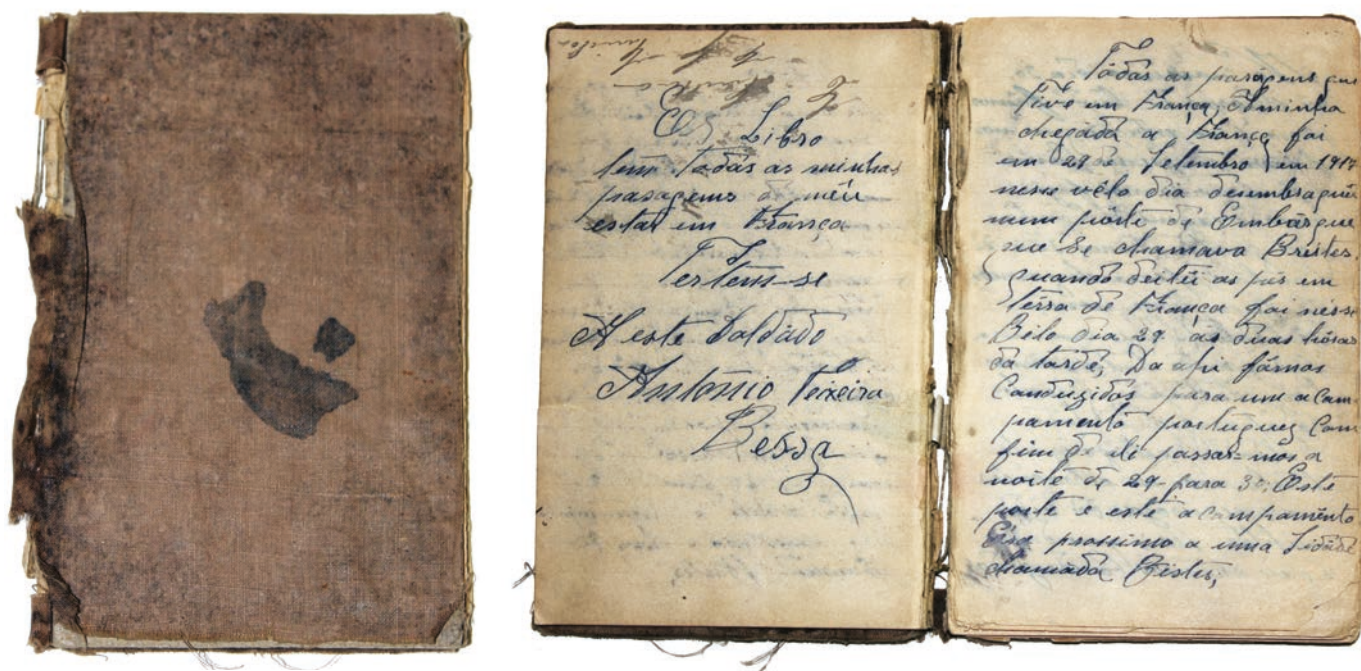 Este Libro
tem todas as minhas
pasagens do meu
estar em França
Pertem-se
A este Soldado
António Teixeira
Bessa
Tôdas as pasagens que
tive em França, A minha
chegada a França foi
em 29 de Setembro em 1917
nesse vélo dia desembarquei
num porte de Embárque
que se chamava Bristes,
quando deitei os pés em
terra de França foi nesse
Bélo dia 29 ás duas hóras
da tarde, Da ahi fômos
Conduzidos para um acam-
pamento portuguez Com
fim de ili passar-mos a
noite de 29 para 30, Este
porte e este acampamento
Era prossimo a uma Sidáde
chamada Bistes,